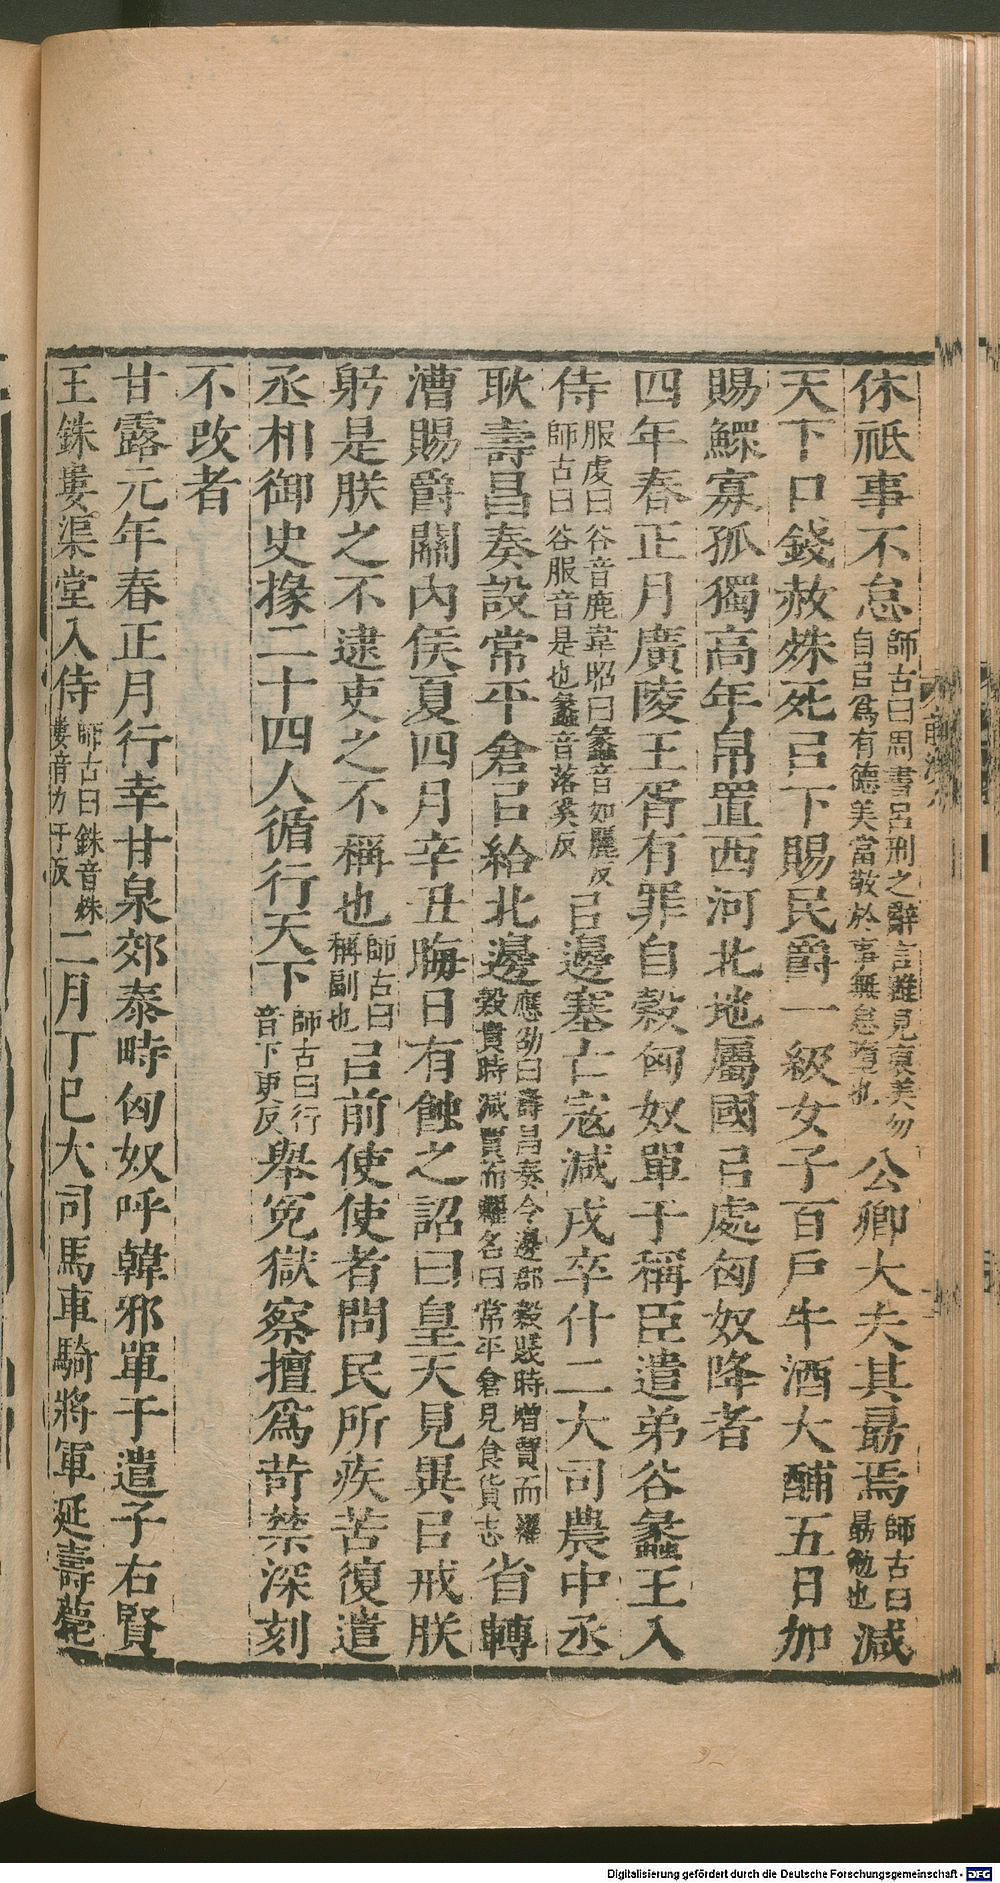 休祇事不怠師古曰周書呂刑之辭言雖見襃美勿自㠯爲有德美當敬於事無怠墮也公卿大夫其勗焉師古曰勗勉也減
天下口錢赦殊死㠯下賜民爵一級女子百戶牛酒大酺五日加
賜鰥寡孤獨高年帛置西河北地屬國㠯處匈奴降者
四年春正月廣陵王胥有罪自殺匈奴單于稱臣遣弟谷蠡王入
侍服虔曰谷音鹿韋昭曰蠡音如麗反師古曰谷服音是也蠡音落奚反㠯邊塞亡寇減戍卒什二大司農中丞
耿壽昌奏設常平倉㠯給北邊應劭曰壽昌奏令邊郡穀賤時增賈而糴穀貴時減賈而糶名曰常平倉見食貨志省轉
漕賜爵關內侯夏四月辛丑晦日有蝕之詔曰皇天見異㠯戒朕
躬是朕之不逮吏之不稱也師古曰稱副也㠯前使使者問民所疾苦復遣
丞相御史掾二十四人循行天下師古曰行音下更反舉冤獄察擅爲苛禁深刻
不改者
甘露元年春正月行幸甘泉郊泰畤匈奴呼韓邪單于遣子右賢
王銖婁渠堂入侍師古曰銖音殊婁音力于反二月丁巳大司馬車騎將軍延壽薨
Digitalisierung gefördert durch die Deutsche Forschungsgemeinschaft - DFG